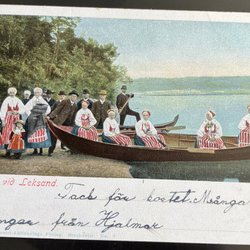 vid Leksand.
Tack för kortet. Många
från Hjalmar